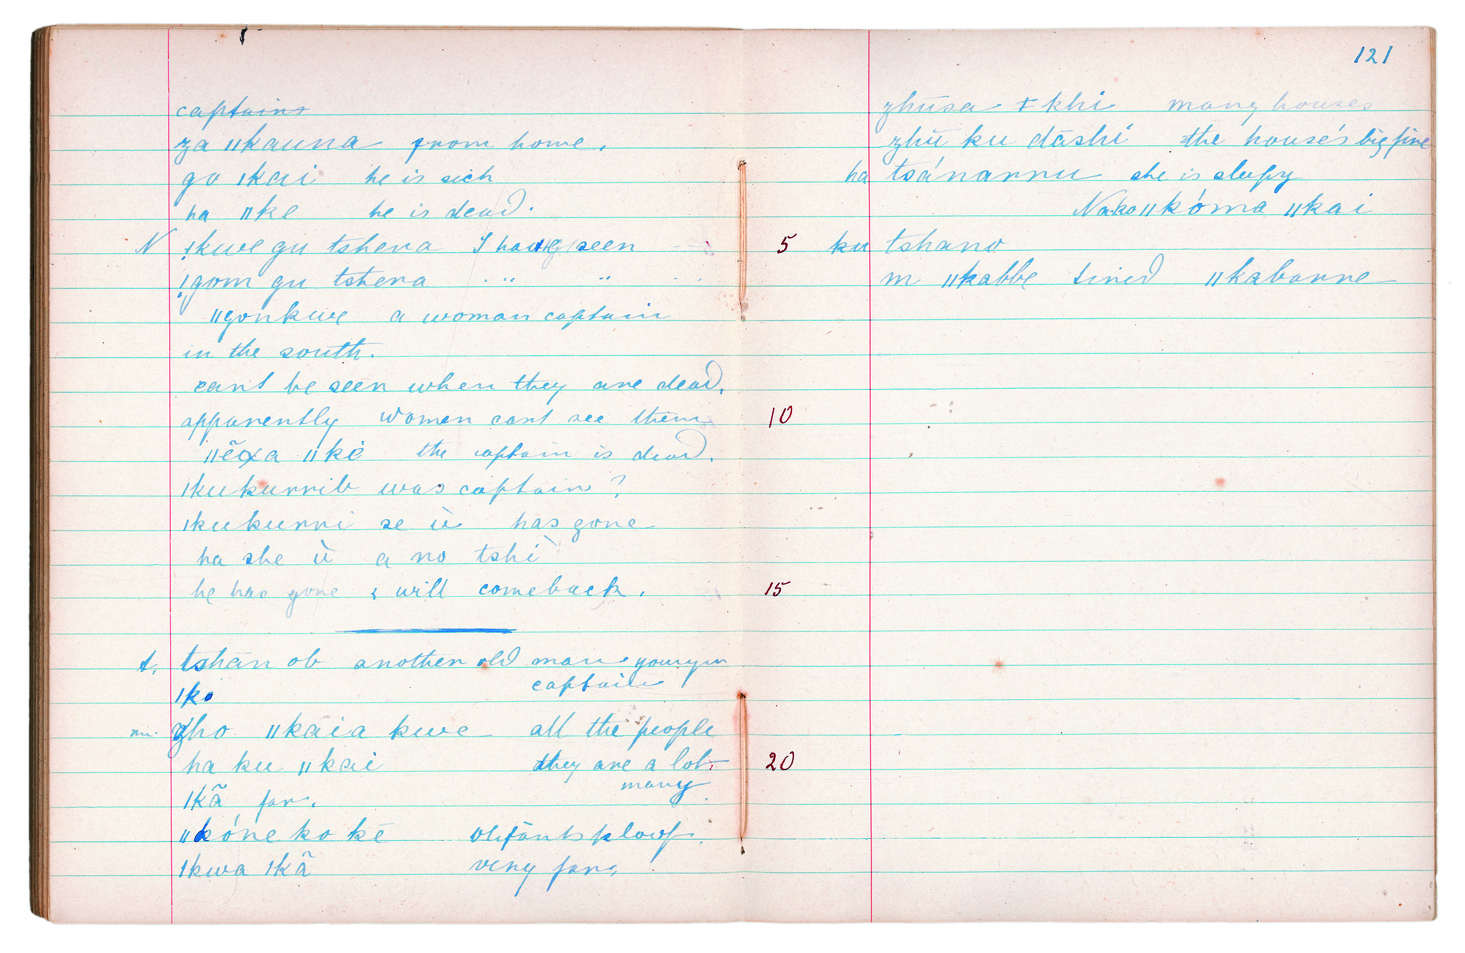 captains
za ǁkauna from home.
go ǀkai he is sick
ha ǁke he is dead.
N !kwe gu tshena I have seen
!gom gu tshena " "
ǁgonkwe a woman captain
in the south.
cant be seen when they are dead.
apparently women cant see them
ǁẽxa ǁkè the captain is dead.
ǀkukurrib was captain?
ǀkukurri se ù has gone
ha she ù a no tshì
he has gone & will come back.
t. tshān ob another old man
ǀko captain
gho ǁkāia kwe all the people
ha ku ǁkai they are a lot.
many
ǀkã far.
ǁkóne ko kē olifants kloof.
ǀkwa ǀkã very far.
121
zhūsa ǂkhi many houses
zhū ku dāshi the house's big fire
ha tsánarru she is sleepy
Nakoǁkóma ǁkai
5 ku tshano
m ǁkabbe tired ǁkabanne
10
15
20